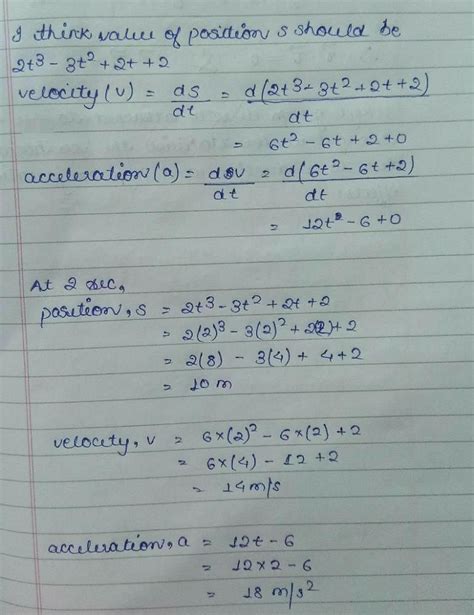 I think value of position s should be
2t³ - 3t² + 2t + 2
velocity (v) = ds/dt = d(2t³ - 3t² + 2t + 2)/dt
= 6t² - 6t + 2 + 0
acceleration (a) = dv/dt = d(6t² - 6t + 2)/dt
= 12t - 6 + 0
At 2 sec,
position, s = 2t³ - 3t² + 2t + 2
= 2(2)³ - 3(2)² + 2(2) + 2
= 2(8) - 3(4) + 4 + 2
= 10 m
velocity, v = 6×(2)² - 6×(2) + 2
= 6×(4) - 12 + 2
= 14 m/s
acceleration, a = 12t - 6
= 12×2 - 6
= 18 m/s²